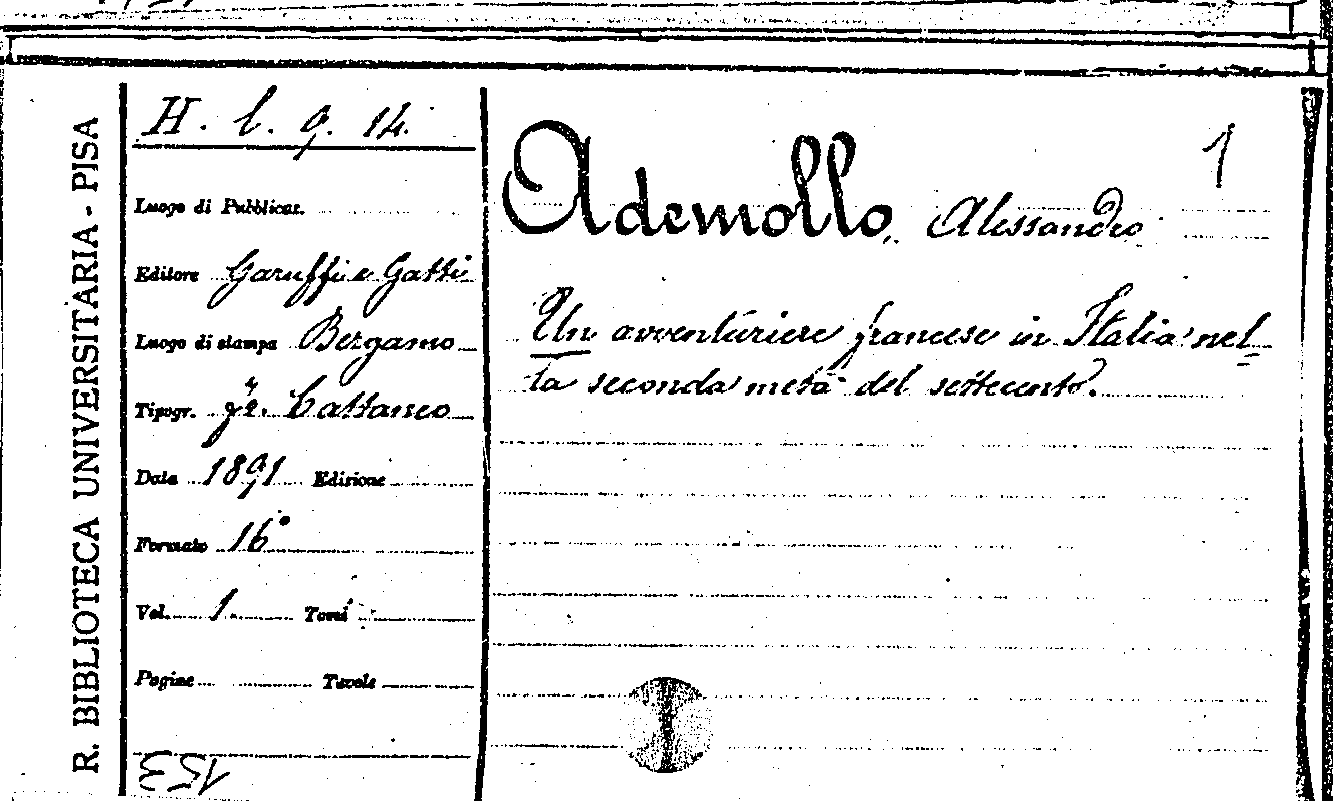 R. BIBLIOTECA UNIVERSITARIA - PISA
H. l. 9. 14.
Luogo di Pubblicaz.
Editore Garuffi e Gatti
Luogo di stampa Bergamo
Tipogr. Cattaneo
Data 1891 Edizione
Formato 16°
Vol. 1. Tomi
Pagine Tavole
153
1
Ademollo, Alessandro
Un avventuriere francese in Italia nel-
la seconda metà del settecento.